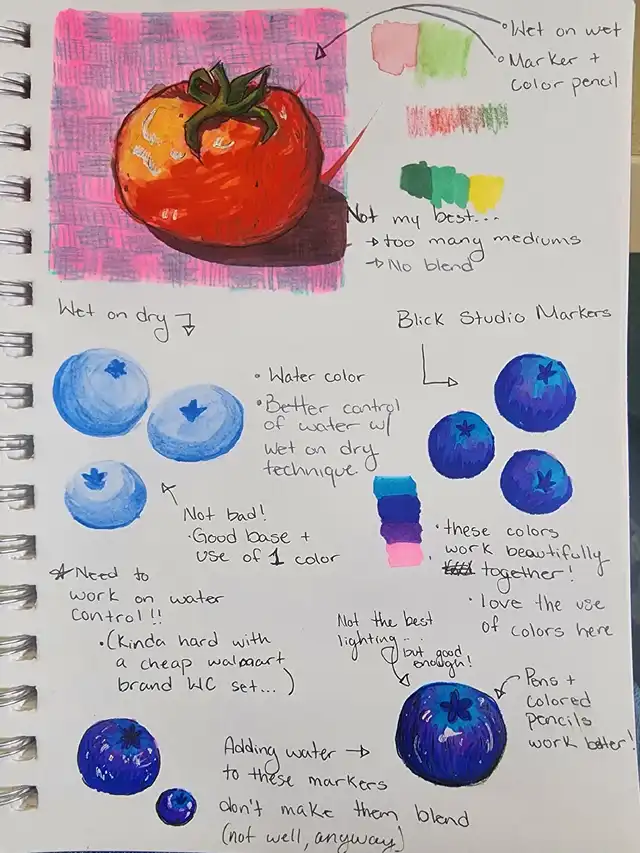 • Wet on wet
• Marker +
color pencil
Not my best...
→ too many mediums
→ No blend
Wet on dry
Blick Studio Markers
• Water color
• Better control
of water w/
wet on dry
technique.
Not bad!
• Good base +
use of 1 color
• these colors
work beautifully
together!
• love the use
of colors here
* Need to
work on water
control!!
• (Kinda hard with
a cheap walmart
brand WC set...)
Not the best
lighting...
but good
enough!
Pens +
colored
pencils
work better!
Adding water →
to these markers
don't make them blend
(not well, anyway)